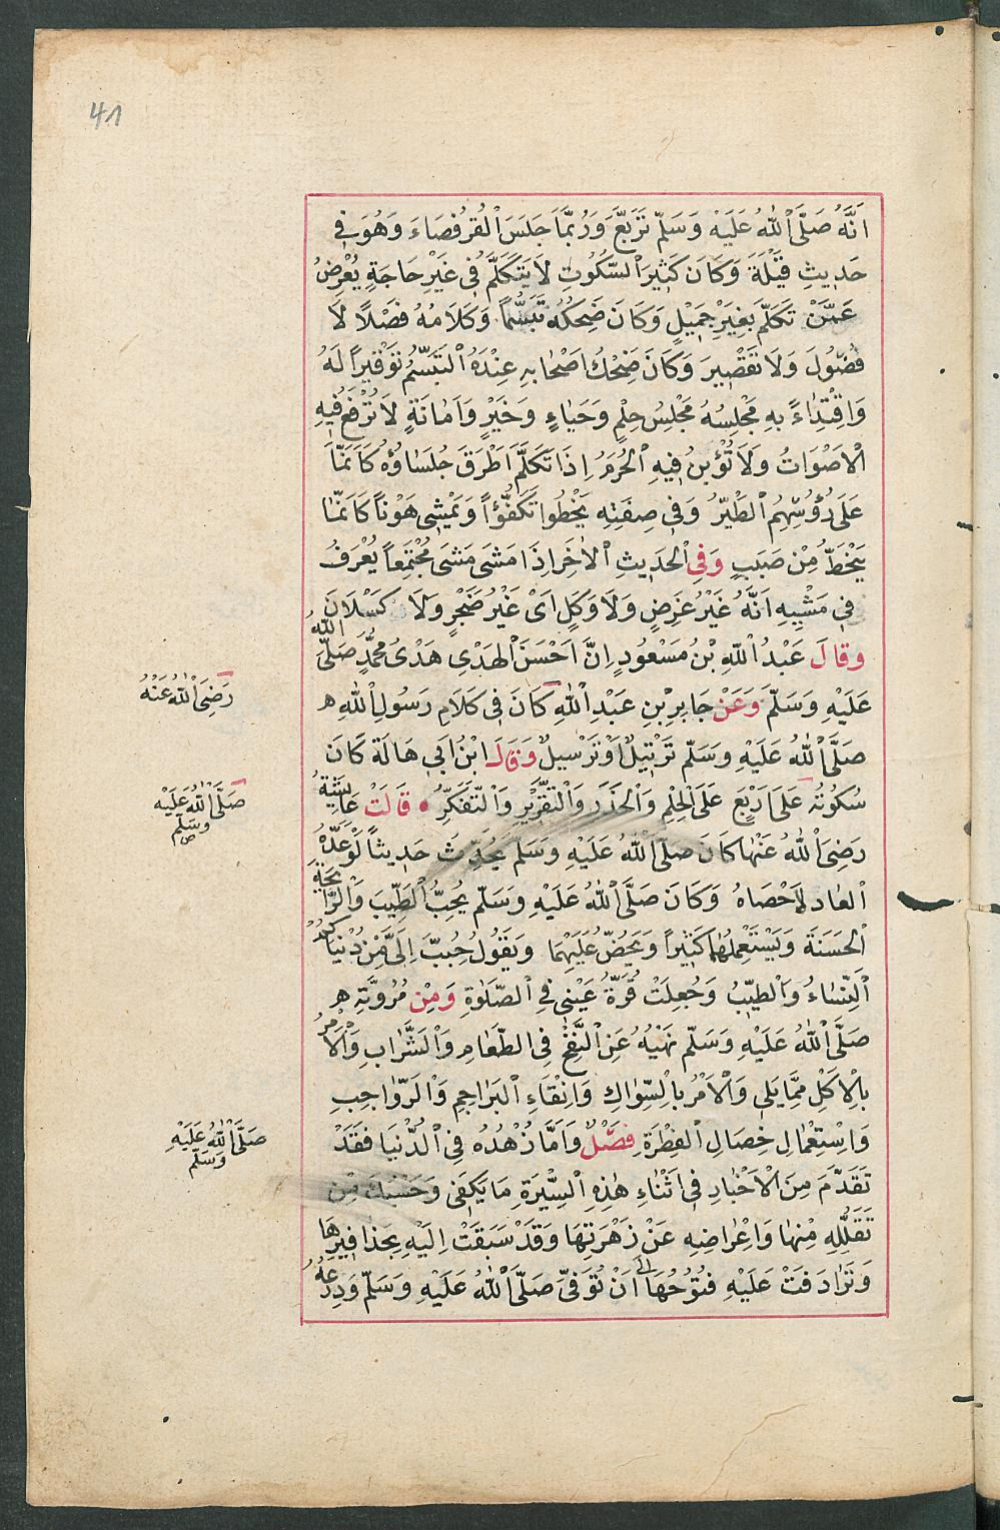 41
اَنَّهُ صَلَّى اللهُ عَلَيْهِ وَسَلَّمَ تَرَبَّعَ وَرُبَّمَا جَلَسَ الْقُرْفُصَاءَ وَهُوَ فِي
حَدِيثِ قَيْلَةَ وَكَانَ كَثِيرَ السُّكُوتِ لَا يَتَكَلَّمُ فِي غَيْرِ حَاجَةٍ يُعْرِضُ
عَمَّنْ تَكَلَّمَ بِغَيْرِ جَمِيْلٍ وَكَانَ ضَحِكُهُ تَبَسُّمًا وَكَلَامُهُ فَصْلًا لَا
فُضُولَ وَلَا تَقْصِيرَ وَكَانَ ضَحِكُ اَصْحَابِهِ عِنْدَهُ التَّبَسُّمُ تَوْقِيرًا لَهُ
وَاقْتِدَاءً بِهِ مَجْلِسُهُ مَجْلِسُ حِلْمٍ وَحَيَاءٍ وَخَيْرٍ وَاَمَانَةٍ لَا تُرْفَعُ فِيهِ
الْاَصْوَاتُ وَلَا تُؤْبَنُ فِيهِ الْحُرَمُ اِذَا تَكَلَّمَ اَطْرَقَ جُلَسَاؤُهُ كَاَنَّمَا
عَلَى رُؤُسِهِمُ الطَّيْرُ وَفِي صِفَتِهِ يَخْطُوا تَكَفُّؤًا وَيَمْشِي هَوْنًا كَاَنَّمَا
يَنْحَطُّ مِنْ صَبَبٍ وَفِي الْحَدِيثِ الْاٰخَرِ اِذَا مَشَى مَشَى مُجْتَمِعًا يُعْرَفُ
فِي مَشْيِهِ اَنَّهُ غَيْرُ غَرِضٍ وَلَا وَكِلٍ اَىْ غَيْرُ ضَجْرٍ وَلَا كَسْلَانَ
وَقَالَ عَبْدُ اللهِ بْنُ مَسْعُودٍ اِنَّ اَحْسَنَ الْهَدْىِ هَدْىُ مُحَمَّدٍ صَلَّى اللهُ
عَلَيْهِ وَسَلَّمَ وَعَنْ جَابِرِ بْنِ عَبْدِ اللهِ كَانَ فِي كَلَامِ رَسُولِ اللهِ
صَلَّى اللهُ عَلَيْهِ وَسَلَّمَ تَرْتِيلٌ اَوْ تَرْسِيلٌ وَقَالَ ابْنُ اَبِي هَالَةَ كَانَ
سُكُوتُهُ عَلَى اَرْبَعٍ عَلَى الْحِلْمِ وَالْحَذَرِ وَالتَّقْرِيرِ وَالتَّفَكُّرِ قَالَتْ عَايِشَةُ
رَضِيَ اللهُ عَنْهَا كَانَ صَلَّى اللهُ عَلَيْهِ وَسَلَّمَ يُحَدِّثُ حَدِيثًا لَوْ عَدَّهُ
الْعَادُّ لَاَحْصَاهُ وَكَانَ صَلَّى اللهُ عَلَيْهِ وَسَلَّمَ يُحِبُّ الطِّيبَ وَالرَّايِحَةَ
الْحَسَنَةَ وَيَسْتَعْمِلُهَا كَثِيرًا وَيَحُضُّ عَلَيْهِمَا وَيَقُولُ حُبِّبَ اِلَيَّ مِنْ دُنْيَاكُمْ
النِّسَاءُ وَالطِّيبُ وَجُعِلَتْ قُرَّةُ عَيْنِي فِي الصَّلٰوةِ وَمِنْ مُرُوَّتِهِ
صَلَّى اللهُ عَلَيْهِ وَسَلَّمَ نَهْيُهُ عَنِ النَّفْخِ فِي الطَّعَامِ وَالشَّرَابِ وَالْاَمْرُ
بِالْاَكْلِ مِمَّا يَلِي وَالْاَمْرُ بِالسِّوَاكِ وَاِنْقَاءِ الْبَرَاجِمِ وَالرَّوَاجِبِ
وَاسْتِعْمَالِ خِصَالِ الْفِطْرَةِ فَصْلٌ وَاَمَّا زُهْدُهُ فِي الدُّنْيَا فَقَدْ
تَقَدَّمَ مِنَ الْاَخْبَارِ فِي اَثْنَاءِ هٰذِهِ السِّيْرَةِ مَا يَكْفِي وَحَسْبُكَ مِنْ
تَقَلُّلِهِ مِنْهَا وَاِعْرَاضِهِ عَنْ زَهْرَتِهَا وَقَدْ سَبَقَتْ اِلَيْهِ بِحَذَافِيرِهَا
وَتَرَادَفَتْ عَلَيْهِ فُتُوحُهَا اِلَى اَنْ تُوُفِّيَ صَلَّى اللهُ عَلَيْهِ وَسَلَّمَ وَدِرْعُهُ
رَضِيَ اللهُ عَنْهُ
صَلَّى اللهُ عَلَيْهِ
وَسَلَّمَ
صَلَّى اللهُ عَلَيْهِ
وَسَلَّمَ